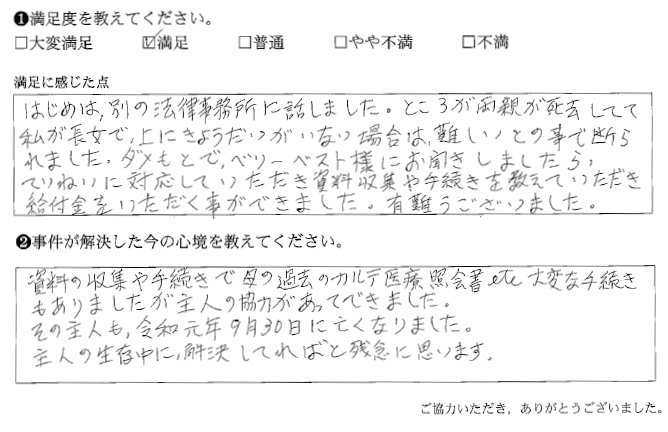 ❶満足度を教えてください。
□大変満足 ☑満足 □普通 □やや不満 □不満
満足に感じた点
はじめは、別の法律事務所に話しました。ところが両親が死去してて
私が長女で、上にきょうだいがいない場合は、難しいとの事で断ら
れました。ダメもとで、ベリーベスト様にお聞きしましたら、
ていねいに対応していただき資料収集や手続きを教えていただき
給付金をいただく事ができました。有難うございました。
❷事件が解決した今の心境を教えてください。
資料の収集や手続きで母の過去のカルテ医療照会書etc大変な手続き
もありましたが主人の協力があってできました。
その主人も、令和元年9月30日に亡くなりました。
主人の生存中に、解決してればと残念に思います。
ご協力いただき，ありがとうございました。